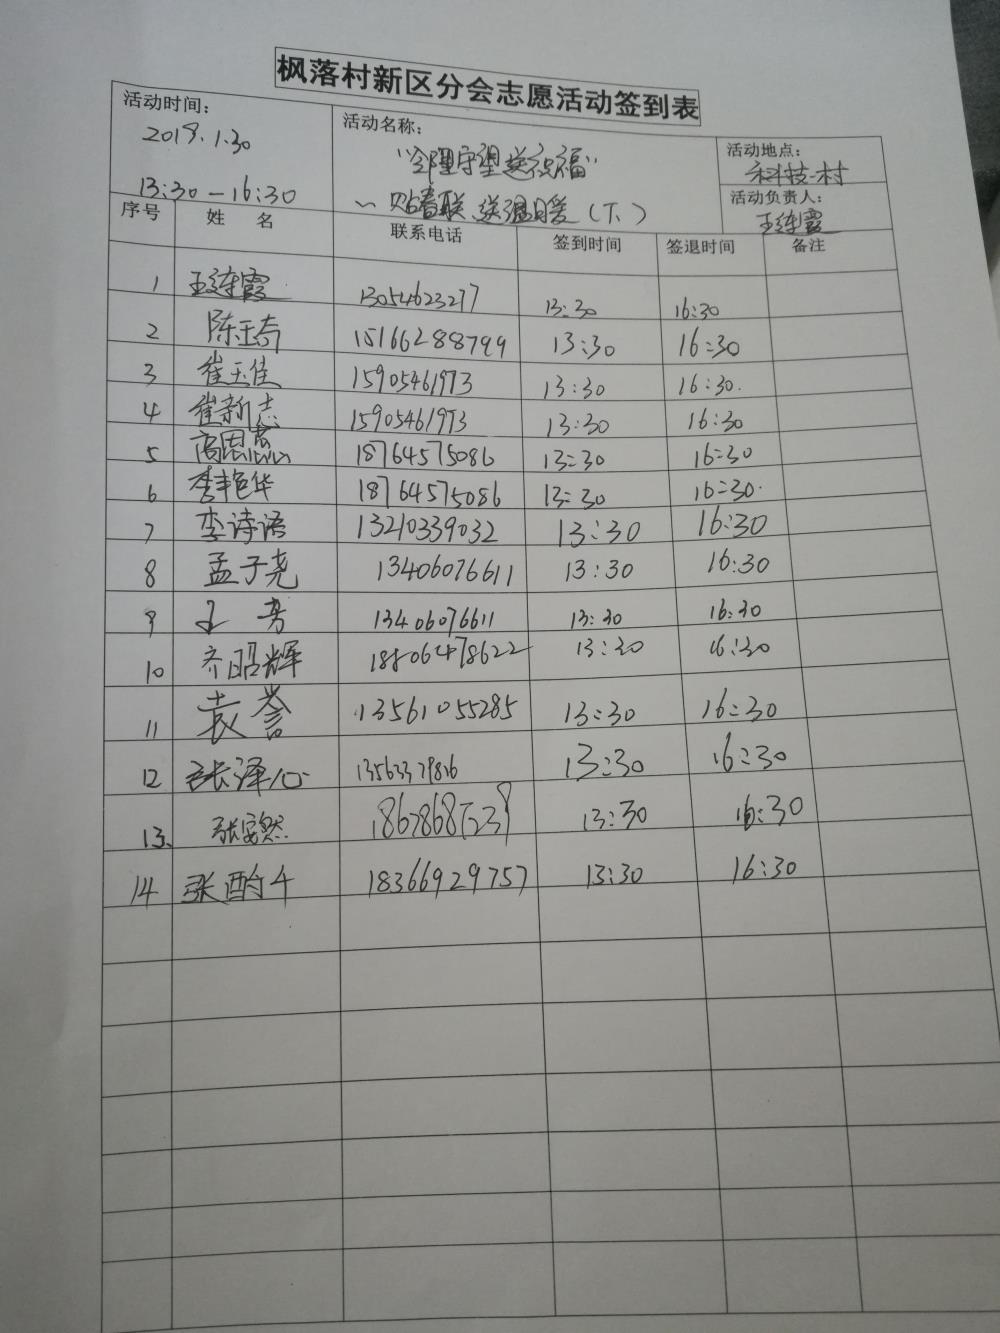 枫落村新区分会志愿活动签到表
活动时间: 2019.1.30 13:30—16:30
活动名称: "邻里守望送祝福" ~贴春联、送温暖(下)
活动地点: 科技村
活动负责人: 王连霞
序号 姓名 联系电话 签到时间 签退时间 备注
1 王连霞 13054623277 13:30 16:30
2 陈玉奇 15166288799 13:30 16:30
3 崔玉佳 15905461973 13:30 16:30.
4 崔新志 15905461973 13:30 16:30
5 高思 18764575086 13:30 16:30
6 李艳华 18764575086 13:30 16:30.
7 李诗语 13210339032 13:30 16:30
8 孟子尧 13406076611 13:30 16:30
9 王芳 13406076611 13:30 16:30
10 齐昭辉 13:30 16:30
11 袁誉 13561055285 13:30 16:30
12 张泽心 13:30 16:30
13、 张安然 13:30 16:30
14 张酌千 18366929757 13:30 16:30